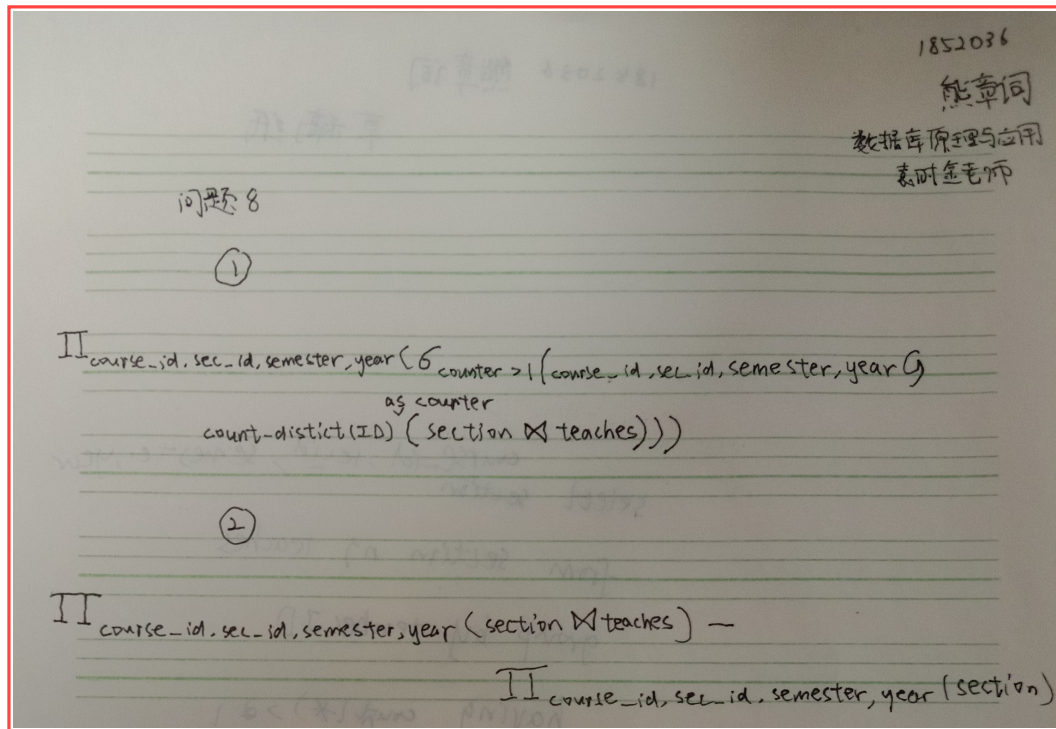 1852036
熊章词
数据库原理与应用
袁时金老师
问题8
①
Π course_id, sec_id, semester, year (σ counter >1 (course_id, sec_id, semester, year G
as counter
count-distict(ID) (section ⋈ teaches)))
②
Π course_id, sec_id, semester, year (section ⋈ teaches) —
Π course_id, sec_id, semester, year (section)